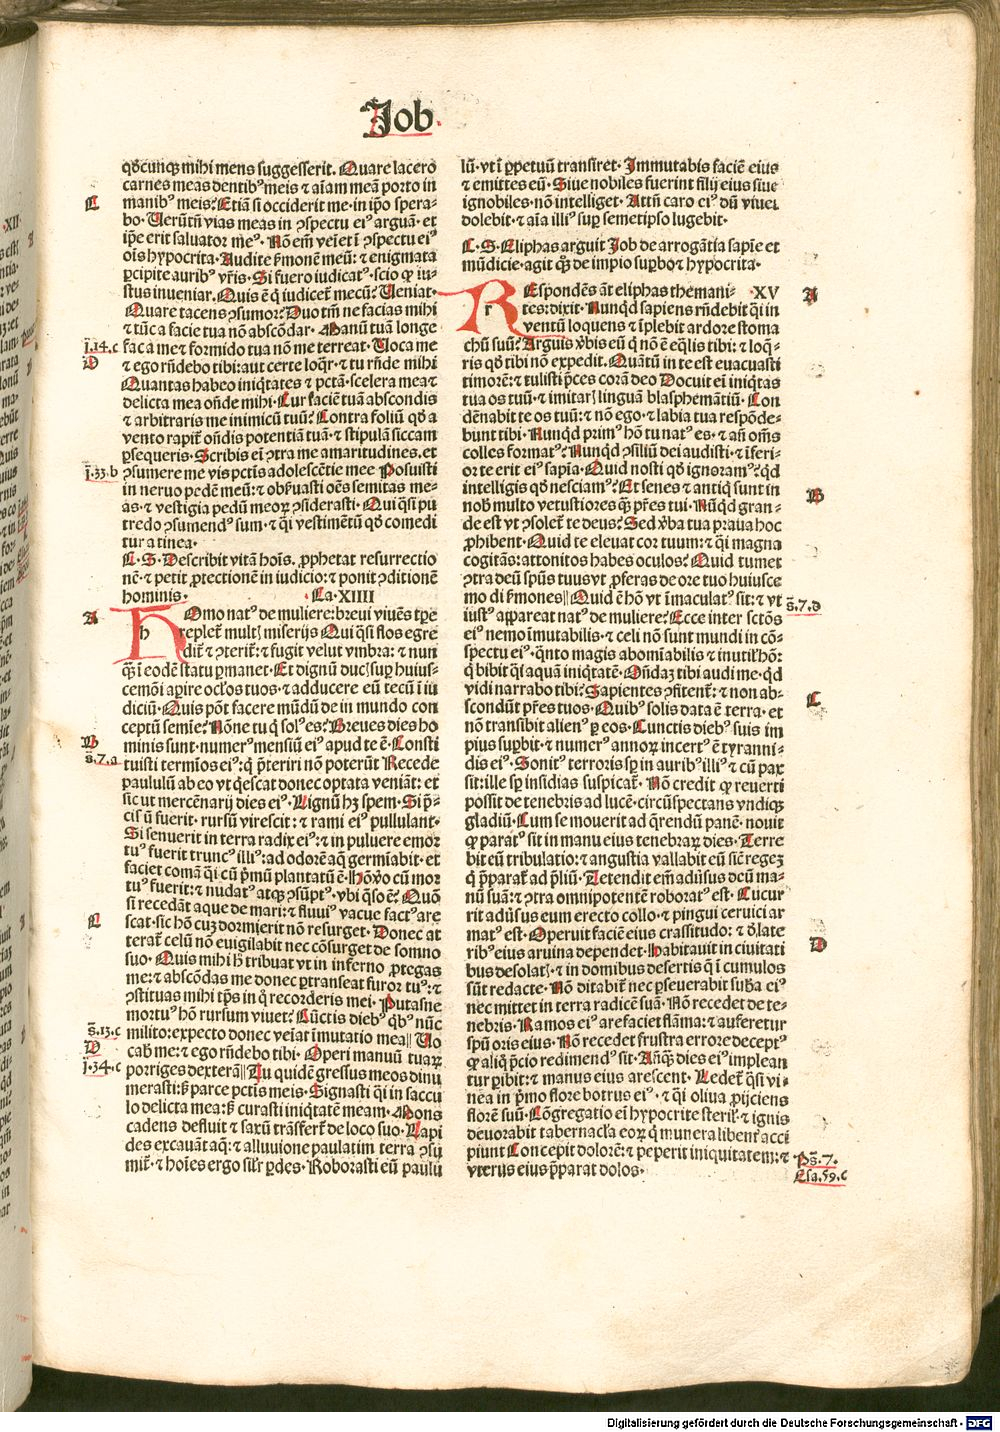 Job.
qđcunqꝫ mihi mens suggesserit. Quare lacero
carnes meas dentibꝰ meis ⁊ aīam meā porto in
manibꝰ meis? Etiā si occiderit me·in ip̄o spera-
bo· Uerūtn̄ vias meas in ꝯspectu eiꝰ arguā· et
ip̄e erit saluator meꝰ· Nō em̄ veīet ī ꝯspectu eiꝰ
oīs hypocrita· Audite ẜmonem meū: ⁊ enigmata
ꝑcipite auribꝰ vr̄is· Si fuero iudicatꝰ·scio ꝙ iu-
stus inueniar· Quis ē q̄ iudicet̄ mecū? Ueniat·
Quare tacens ꝯsumor? Duo tm̄ ne facias mihi
⁊ tūc a facie tua nō abscōdar· Manū tuā longe
fac a me ⁊ formido tua nō me terreat· Uoca me
⁊ ego rn̄debo tibi: aut certe loq̄r·⁊ tu rn̄de mihi
Quantas habeo iniq̄tates ⁊ pctā·scelera mea ⁊
delicta mea on̄de mihi· Cur faciē tuā abscondis
⁊ arbitraris me inimicū tuū? Contra foliū qđ a
vento rapit̄ on̄dis potentiā tuā·⁊ stipulā siccam
ꝑsequeris· Scribis eī ꝯtra me amaritudines·et
ꝯsumere me vis pctīs adolescētie mee Posuisti
in neruo pedē meū: ⁊ obẜuasti oēs semitas me-
as·⁊ vestigia pedū meoꝝ ꝯsiderasti· Qui q̄si pu
tredo ꝯsumendꝰ sum·⁊ q̄i vestimētū qđ comedi
tur a tinea·
C·S·Describit vitā hoīs· ꝓphetat resurrectio
nē·⁊ petit ꝓtectionē in iudicio: ⁊ ponit ꝯditionē
hominis· Ca·XIIII
HOmo natꝰ de muliere: breui viuēs tꝑe
repletꝰ multꝭ miserijs Qui q̄si flos egre
dit̄·⁊ ꝯterit̄: ⁊ fugit velut vmbra: ⁊ nun
q̄ꝫ ī eodē statu ꝑmanet· Et dignū ducꝭ suꝑ huius-
cemōi aꝑire oclos tuos·⁊ adducere eū tecū ī iu
diciū· Quis pōt facere mūdū de in mundo con
ceptū semīe? Nōne tu q̄ solꝰ es? Breues dies ho
minis sunt·numerꝰ mensiū eiꝰ apud te ē· Consti
tuisti termīos eiꝰ: q̄ p̄teriri nō poterūt Recede
paululū ab eo vt q̄escat donec optata veniāt: et
sicut mercēnarij dies eiꝰ· Lignū hꝫ spem· Si p̄-
cisū fuerit· rursū virescit: ⁊ rami eiꝰ pullulant·
Si senuerit in terra radix eiꝰ: ⁊ in puluere emor
tuꝰ fuerit truncꝰ illiꝰ: ad odorē aq̄ germīabit· et
faciet comā q̄i cū p̄mū plantatū ē· Hōv̄o cū mor
tuꝰ fuerit: ⁊ nudatꝰ atqꝫ ꝯsūptꝰ· vbi q̄so ē? Quō
si recedāt aque de mari: ⁊ fluuiꝰ vacue factꝰ are
scat· sic hō cuꝫ dormierit nō resurget· Donec at
terat̄ celū nō euigilabit nec cōsurget de somno
suo· Quis mihi h̄ tribuat vt in inferno ꝓtegas
me: ⁊ abscōdas me donec ꝑtranseat furor tuꝰ: ⁊
ꝯstituas mihi tp̄s in q̄ recorderis mei· Putasne
mortuꝰ hō rursum viuet? Cūctis diebꝰ q̄bꝰ nūc
milito: expecto donec veīat īmutatio mea|| Uo
cabꝭ me: ⁊ ego rn̄debo tibi· Operi manuū tuaꝝ
porriges dexterā|| Tu quidē gressus meos dinu
merasti: ẜꝫ parce pctis meis· Signasti q̄i in saccu
lo delicta mea: ẜꝫ curasti iniq̄tatē meam· Mons
cadens defluit ⁊ saxū trāsfert̄ de loco suo· Lapi
des excauāt aq̄: ⁊ alluuione paulatim terra ꝯsu
mit̄·⁊ hoīes ergo silr̄ ꝑdes· Roborasti eū paulu
lū·vt ī ꝑpetuū transiret· Immutabis faciē eius
⁊ emittes eū· Siue nobiles fuerint filij eius siue
ignobiles·nō intelliget· Attn̄ caro eiꝰ dū viuet
dolebit·⁊ aīa illiꝰ suꝑ semetipso lugebit·
C·S·Eliphas arguit Job de arrogātia sapīe et
mūdicie·agit q̄ꝫ de impio suꝑbo ⁊ hypocrita·
REspondēs āt eliphas themani- ·XV
tes: dixit· Nunqđ sapiens rn̄debit q̄i in
ventū loquens ⁊ īplebit ardore stoma
chū suū? Arguis v̄bis eū q̄ nō ē eq̄lis tibi: ⁊ loq̄-
ris qđ tibi nō expedit· Quātū in te est euacuasti
timorē: ⁊ tulisti p̄ces corā deo Docuit eī iniq̄tas
tua os tuū·⁊ imitarꝭ linguā blasphemātiū· Con
dēnabit te os tuū: ⁊ nō ego·⁊ labia tua respōde-
bunt tibi· Nunqđ primꝰ hō tu natꝰ es·⁊ an̄ oēs
colles formatꝰ? Nunqđ ꝯsiliū dei audisti·⁊ īferi-
or te erit eiꝰ sapīa· Quid nosti qđ ignoramꝰ? qd
intelligis qđ nesciamꝰ? Et senes ⁊ antiq̄ sunt in
nob̄ multo vetustiores q̄ꝫ p̄res tui· Nūqđ gran-
de est vt ꝯsolet̄ te deus? Sed v̄ba tua praua hoc
ꝓhibent· Quid te eleuat cor tuum: ⁊ q̄i magna
cogitās: attonitos habes oculos? Quid tumet
ꝯtra deū sp̄us tuus vt ꝓferas de ore tuo huiusce
mōi ẜmones|| Quid ē hō vt īmaculatꝰ sit: ⁊ vt
iustꝰ appareat natꝰ de muliere? Ecce inter sctōs
eiꝰ nemo īmutabilis·⁊ celi nō sunt mundi in cō-
spectu eiꝰ· q̄nto magis abomīabilis ⁊ inutil̄ hō:
q̄ bibit q̄i aquā iniq̄tatē· Ōn̄daꝫ tibi audi me·qđ
vidi narrabo tibi? Sapientes ꝯfitent̄: ⁊ non ab-
scondūt p̄res tuos· Quibꝰ solis data ē terra·et
nō transibit alienꝰ ꝑ eos· Cunctis diebꝰ suis im
pius suꝑbit·⁊ numerꝰ annoꝝ incertꝰ ē tyranni-
dis eiꝰ· Sonitꝰ terroris sp̄ in auribꝰ illiꝰ ⁊ cū pax
sit: ille sp̄ insidias suspicat̄· Nō credit ꝙ reuerti
possit de tenebris ad lucē·circūspectans vndiqꝫ
gladiū· Cum se mouerit ad q̄rendū panē·nouit
ꝙ paratꝰ sit in manu eius tenebraꝝ dies· Terre
bit eū tribulatio: ⁊ angustia vallabit eū sic̄ regeꝫ
q̄ p̄parat̄ ad p̄liū· Tetendit em̄ aduſus deū ma-
nū suā: ⁊ ꝯtra omnipotentē roboratꝰ est· Cucur
rit aduſus eum erecto collo·⁊ pingui ceruici ar
matꝰ est· Operuit faciē eius crassitudo: ⁊ d̄ late
ribꝰ eius aruina dependet· Habitauit in ciuitati
bus desolatꝭ·⁊ in domibus desertis q̄ ī cumulos
sūt redacte· Nō ditabit̄ nec ꝑseuerabit sub̄a eiꝰ
nec mittet in terra radicē suā· Nō recedet de te-
nebris· Ramos eiꝰ arefaciet flāma: ⁊ auferetur
spū oris eius· Nō recedet frustra errore deceptꝰ
ꝙ aliq̄ p̄cio redimendꝰ sit· Anq̄ꝫ dies eiꝰ implean
tur ꝑibit: ⁊ manus eius arescent· Ledet̄ q̄si vi-
nea in p̄mo flore botrus eiꝰ·⁊ q̄i oliua ꝓijciens
florē suū· Cōgregatio eī hypocrite steril̄·⁊ ignis
deuorabit tabernacl̄a eoꝝ q̄ munera libent̄ acci
piunt Concepit dolorē: ⁊ peperit iniquitatem: ⁊
vterus eius p̄parat dolos·
C
j.14.c
D
j.33.b
A
B
s̄.7.a
C
s̄.13.c
D
j.34.c
A
B
s̄.7.d
C
D
Ps̄.7.
Esa.59.c
Digitalisierung gefördert durch die Deutsche Forschungsgemeinschaft - DFG